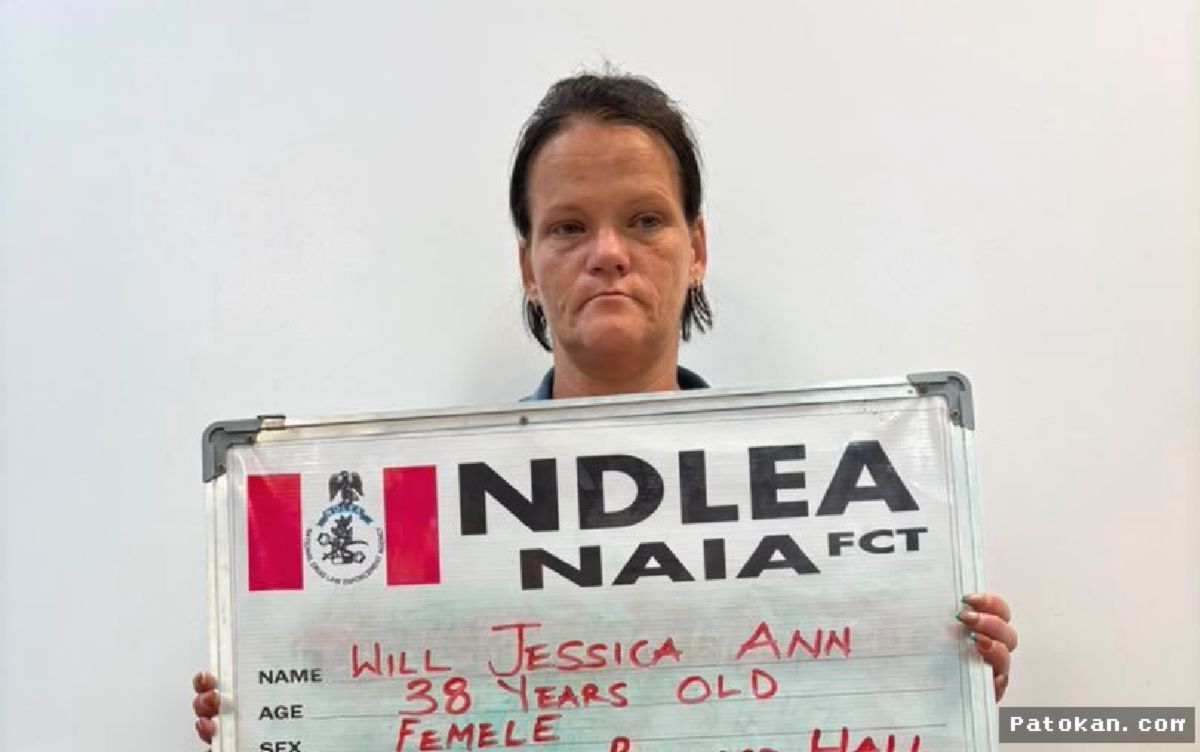 NDLEA
NAIA FCT
NDLEA
NAME WILL JESSICA ANN
AGE 38 YEARS OLD
SEX FEMELE
HALL
Patokan.com